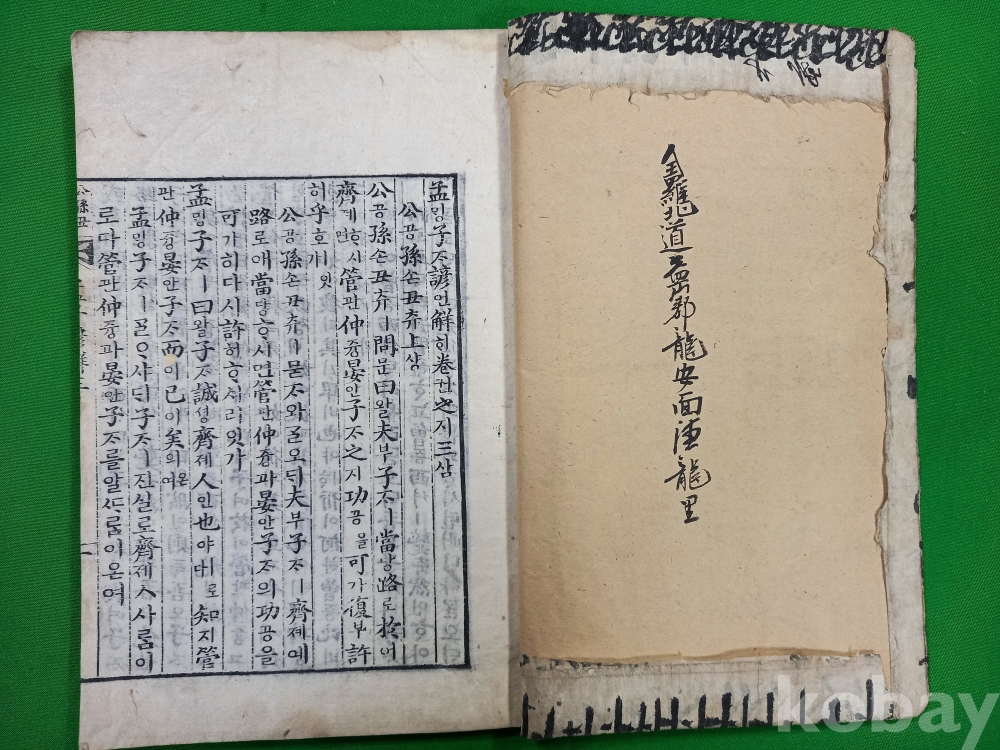 全羅北道益山郡龍安面德龍里
孟ᄆᆡᆼ子ᄌᆞ諺언解ᄒᆡ卷권之지三삼
公공孫손丑튜上샹
公공孫손丑튜ㅣ問문曰왈夫부子ᄌᆞㅣ當당路로於어
齊졔ᄒᆞ시면管관仲즁晏안子ᄌᆞ之지功공을可가復부許
히乎호ㅣ잇
公공孫손丑튜ㅣ묻ᄌᆞ와ᄀᆞᆯ오ᄃᆡ夫부子ᄌᆞㅣ齊졔예
路로애當당ᄒᆞ시면管관仲즁과晏안子ᄌᆞ의功공을
可가히다시許허ᄒᆞ시리잇가
孟ᄆᆡᆼ子ᄌᆞㅣ曰왈子ᄌᆞ誠셩齊졔人인也야ㅣ로다知지管
관仲즁晏안子ᄌᆞ而이已이矣의온여
孟ᄆᆡᆼ子ᄌᆞㅣᄀᆞᆯᄋᆞ샤ᄃᆡ子ᄌᆞㅣ진실로齊졔人사ᄅᆞᆷ이
로다管관仲즁과晏안子ᄌᆞ를알ᄯᆞᄅᆞᆷ이온여
公孫丑
kobay